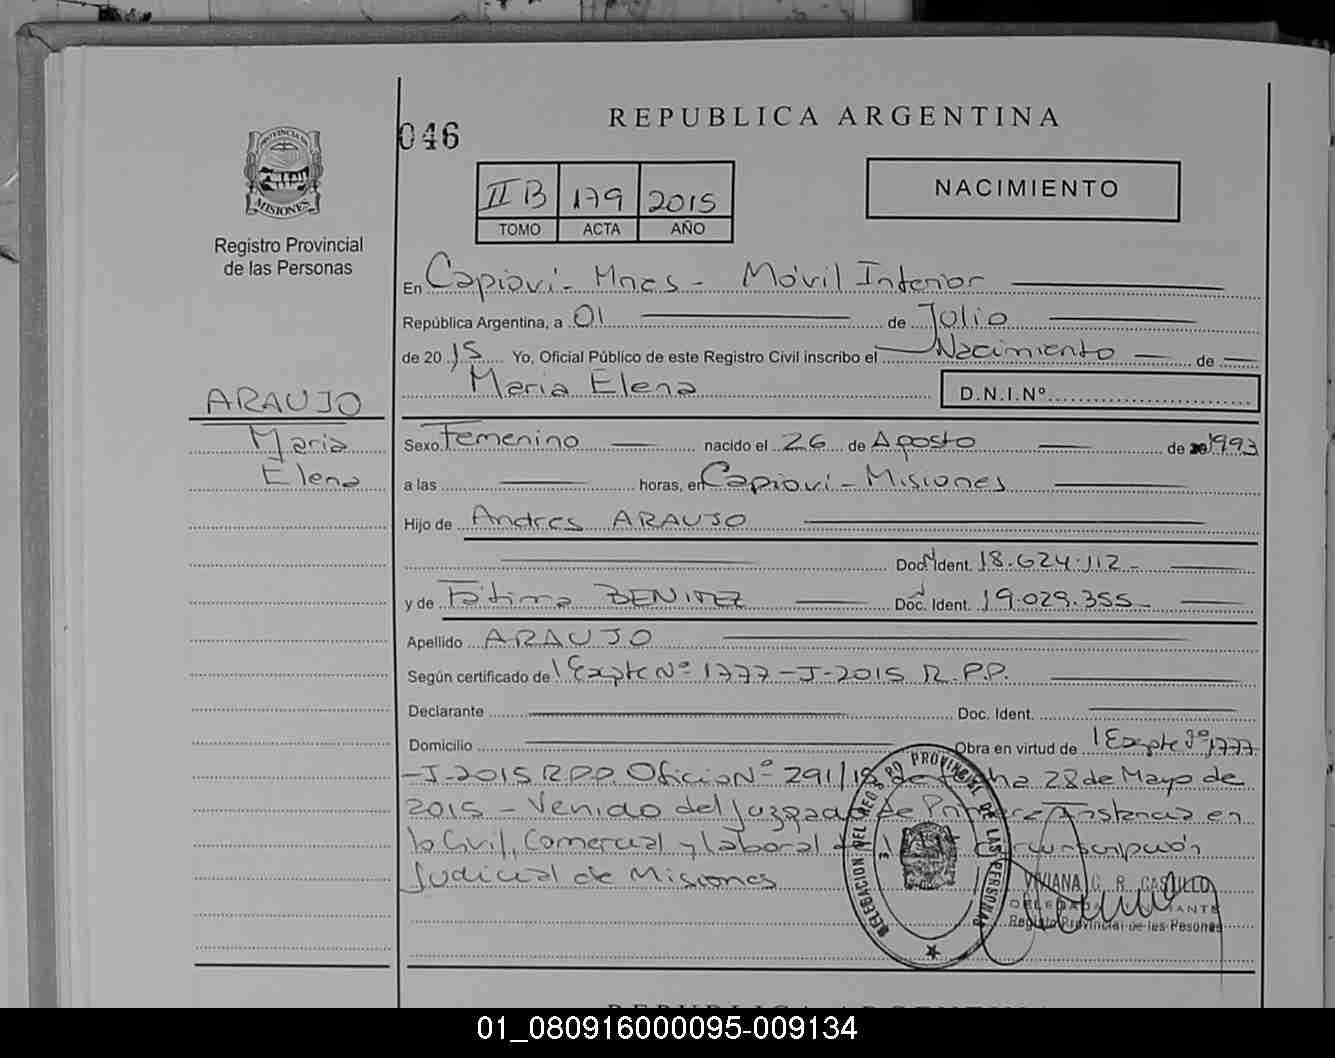 REPUBLICA ARGENTINA
046
PROVINCIA DE
MISIONES
Registro Provincial
de las Personas
II B 179 2015
TOMO ACTA AÑO
NACIMIENTO
En Capiovi - Mnes - Móvil Interior
República Argentina, a 01 de Julio
de 2015 Yo, Oficial Público de este Registro Civil inscribo el Nacimiento de
Maria Elena D.N.I.Nº
ARAUJO
Maria
Elena
Sexo Femenino nacido el 26 de Agosto de 1993
a las horas, en Capiovi - Misiones
Hijo de Andres ARAUJO
Doc. Ident. 18.624.112 -
y de Fátima BENITEZ Doc. Ident. 19.029.355 -
Apellido ARAUJO
Según certificado de Expte Nº 1777-J-2015 R.P.P.
Declarante Doc. Ident.
Domicilio Obra en virtud de Expte Nº 1777
-J-2015 R.P.P. Oficio Nº 291/15 de fecha 28 de Mayo de
2015 - Venido del Juzgado de Primera Instancia en
lo Civil, Comercial y laboral de la circunscripción
Judicial de Misiones
DELEGACION DEL REGISTRO PROVINCIAL DE LAS PERSONAS
VIVIANA G. R. CASTILLO
Registro Provincial de las Pesonas
REPUBLICA ARGENTINA
01_080916000095-009134